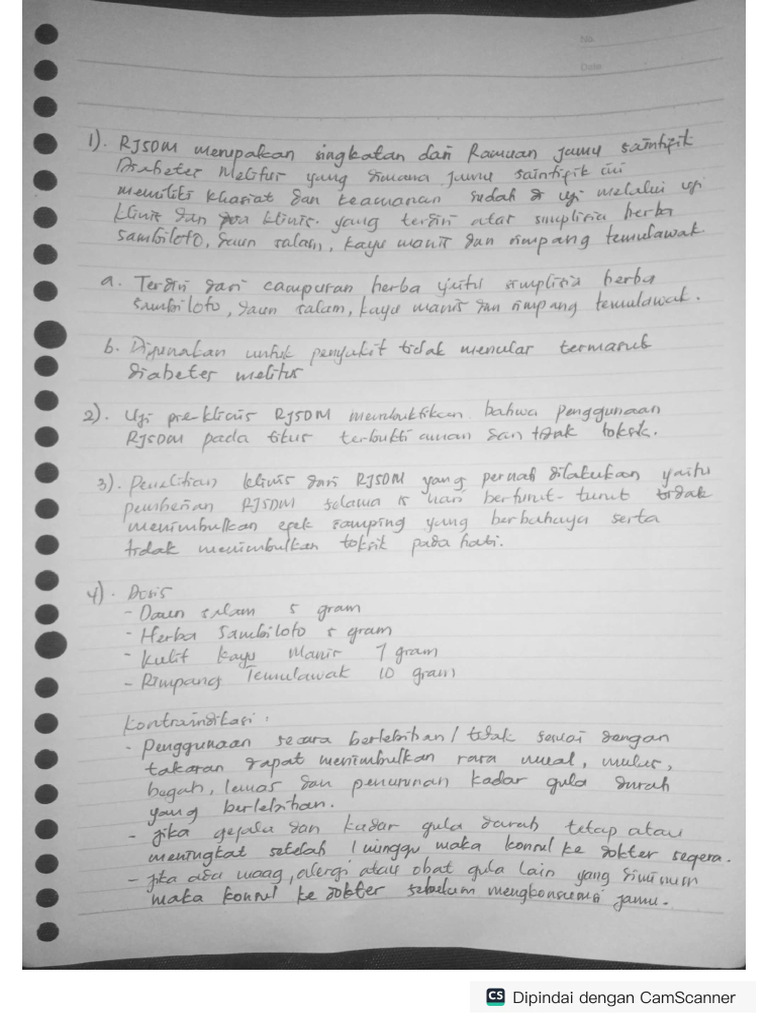 No.
Date
1). RJSDM merupakan singkatan dari Ramuan jamu saintifik
Diabetes Melitus yang dimana jamu saintifik ini
memiliki khasiat dan keamanan sudah di uji melalui uji
klinis dan pra klinis. yang terdiri atas simplisia herba
sambiloto, daun salam, kayu manis dan rimpang temulawak.
a. Terdiri dari campuran herba yaitu simplisia herba
sambiloto, daun salam, kayu manis dan rimpang temulawak.
b. Digunakan untuk penyakit tidak menular termasuk
diabetes melitus
2). Uji pre-klinis RJSDM membuktikan bahwa penggunaan
RJSDM pada tikus terbukti aman dan tidak toksik.
3). Penelitian klinis dari RJSDM yang pernah dilakukan yaitu
pemberian RJSDM selama 15 hari berturut-turut tidak
menimbulkan efek samping yang berbahaya serta
tidak menimbulkan toksik pada hati.
4). Dosis
- Daun salam 5 gram
- Herba Sambiloto 5 gram
- Kulit kayu Manis 7 gram
- Rimpang Temulawak 10 gram
Kontraindikasi :
- Penggunaan secara berlebihan / tidak sesuai dengan
takaran dapat menimbulkan rasa mual, mules,
begah, lemas dan penurunan kadar gula darah
yang berlebihan.
- Jika gejala dan kadar gula darah tetap atau
meningkat setelah 1 minggu maka konsul ke dokter segera.
- Jika ada maag, alergi atau obat gula lain yang diminum
maka konsul ke dokter sebelum mengkonsumsi jamu.
CS Dipindai dengan CamScanner